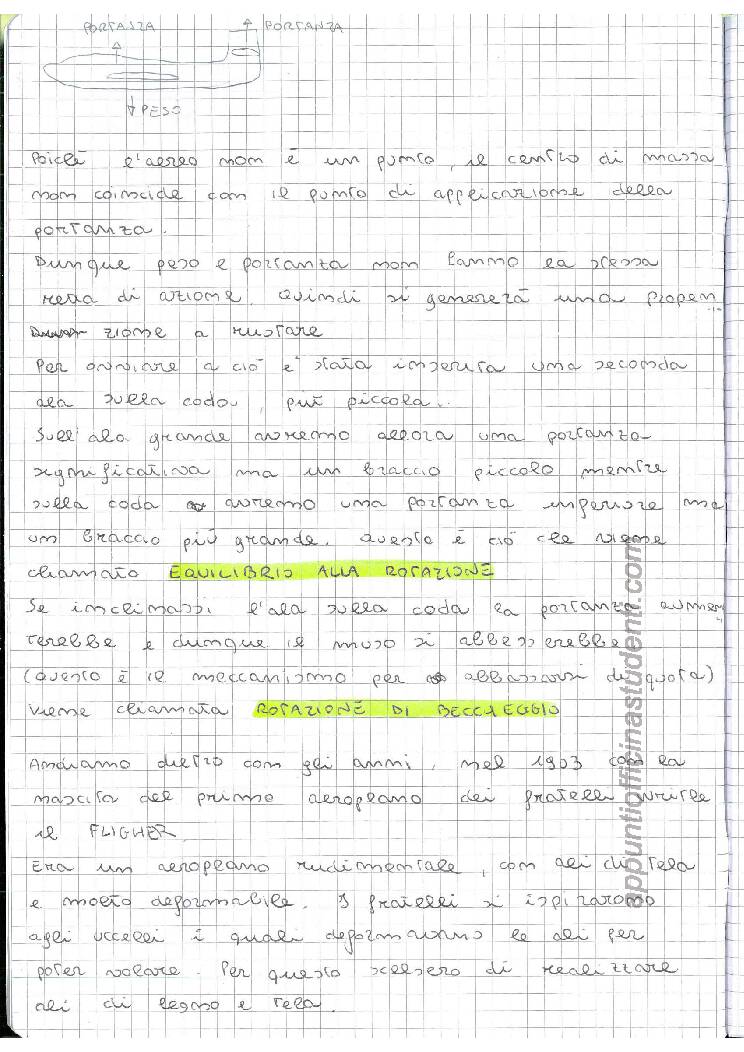 PORTANZA
PORTANZA
PESO
Poiché l'aereo non è un punto, il centro di massa
non coincide con il punto di applicazione della
portanza.
Dunque peso e portanza non hanno la stessa
retta di azione. Quindi si genererà una propen
zione a ruotare
Per ovviare a ciò è stata inserita una seconda
ala sulla coda, più piccola.
Sull'ala grande avremo allora una portanza
significativa ma un braccio piccolo mentre
sulla coda avremo una portanza inferiore ma
un braccio più grande. Questo è ciò che viene
chiamato EQUILIBRIO ALLA ROTAZIONE
Se inclinassi l'ala sulla coda la portanza aumen
terebbe e dunque il muso si abbasserebbe
(questo è il meccanismo per abbassarsi di quota)
viene chiamata ROTAZIONE DI BECCHEGGIO
Andiamo dietro con gli anni, nel 1903 con la
nascita del primo aeroplano dei fratelli Write
il FLIGHER
Era un aeroplano rudimentale, con ali di tela
e molto deformabile. I fratelli si ispirarono
agli uccelli i quali deformavano le ali per
poter volare. Per questo scelsero di realizzare
ali di legno e tela.
appuntiofficinastudenti.com